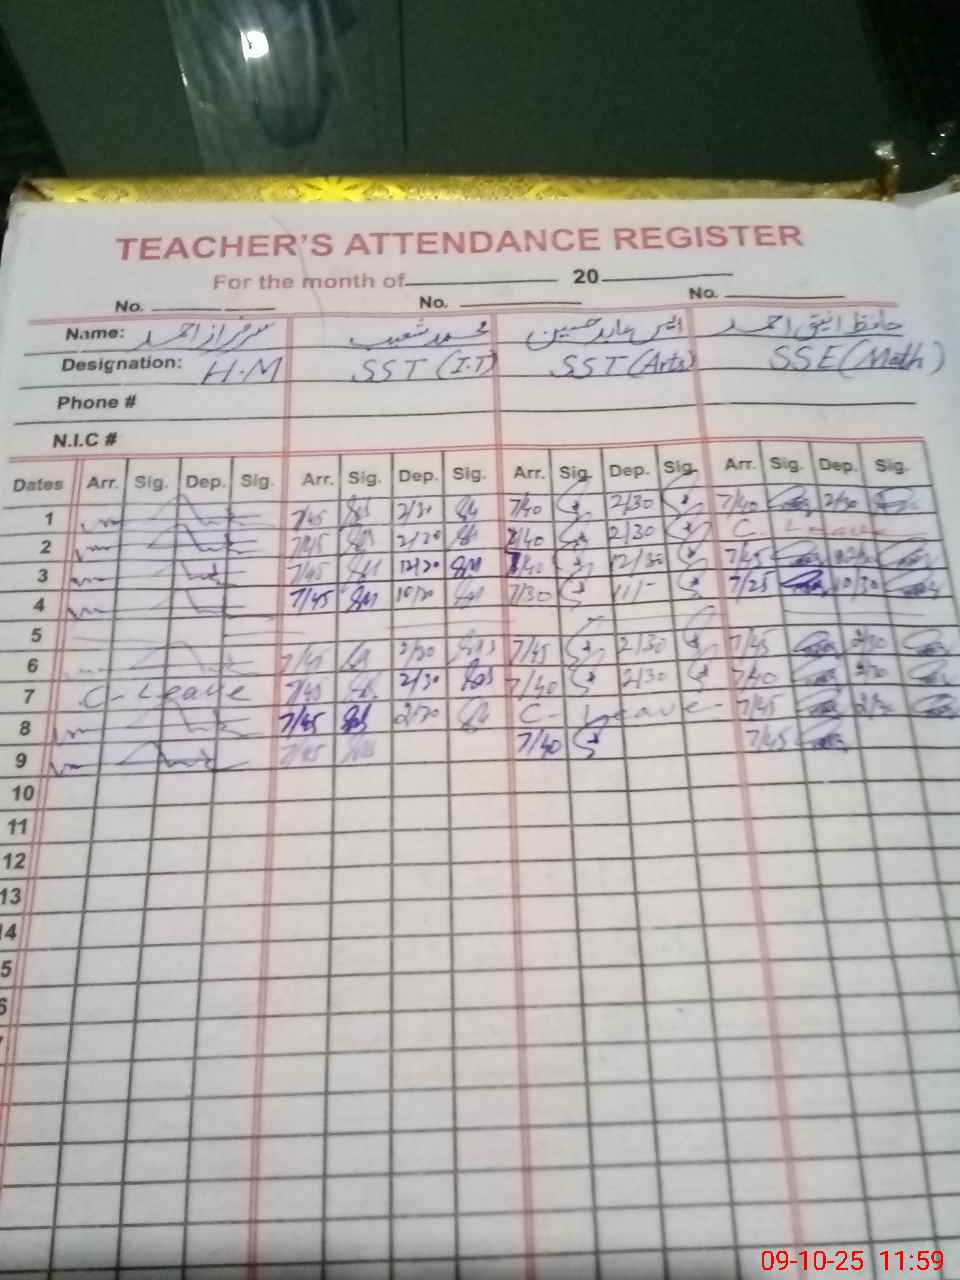 TEACHER'S ATTENDANCE REGISTER
For the month of 20
No. No. No.
Name: سرفراز احمد محمد شعیب ایس عابد حسین حافظ انیق احمد
Designation: H.M SST (I.T) SST (Arts) SSE (Math)
Phone #
N.I.C #
Dates Arr. Sig. Dep. Sig. Arr. Sig. Dep. Sig. Arr. Sig. Dep. Sig. Arr. Sig. Dep. Sig.
1 7/45 2/30 7/40 2/30 7/40 2/30
2 7/45 2/30 7/40 2/30 C. Leave
3 7/45 12/30 12/30 7/45
4 7/45 10/30 7/30 11/- 7/25 10/30
5
6 7/45 2/30 7/45 2/30 7/45 2/30
7 C-Leave 7/45 2/30 7/40 2/30 7/40 2/30
8 7/45 2/30 C- Leave- 7/45 2/30
9 7/45 7/40 7/45
10
11
12
13
14
5
6
09-10-25 11:59